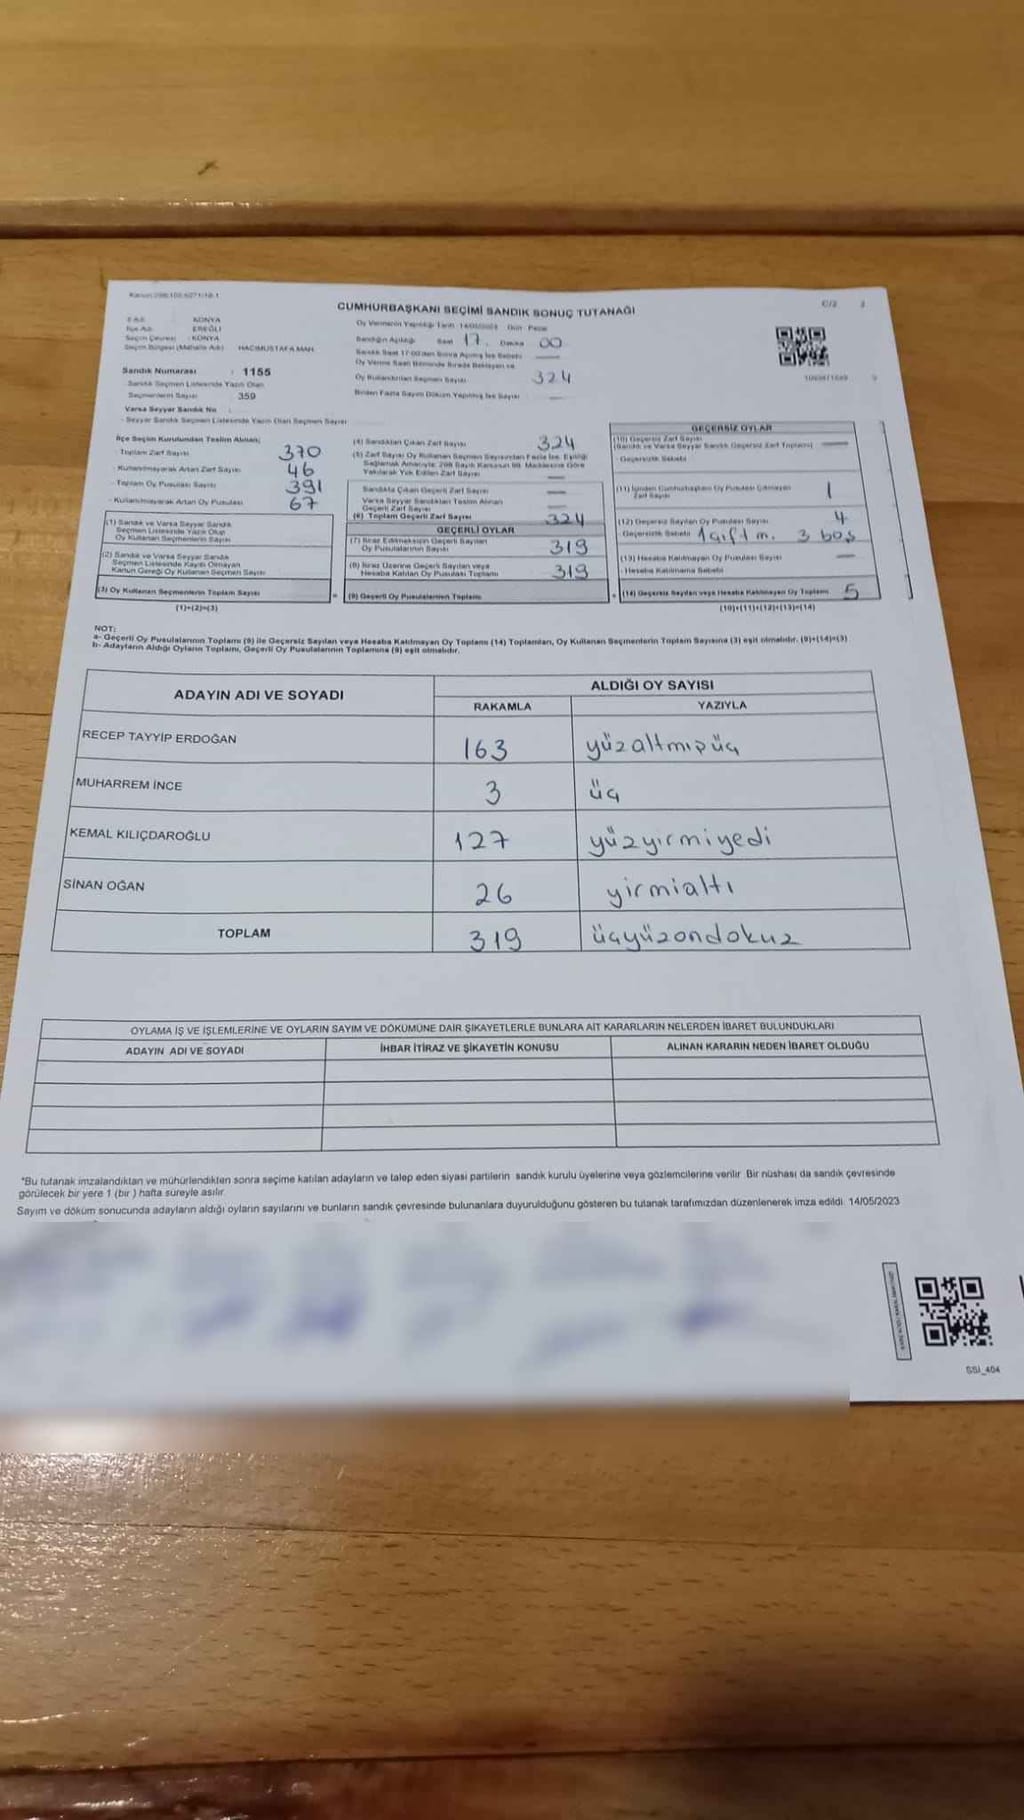 CUMHURBAŞKANI SEÇİMİ SANDIK SONUÇ TUTANAĞI
C/2
İl Adı KONYA
İlçe Adı EREĞLİ
Seçim Çevresi KONYA
Seçim Bölgesi (Mahalle Adı) HACIMUSTAFA MAH.
Sandık Numarası : 1155
Sandık Seçmen Listesinde Yazılı Olan
Seçmenlerin Sayısı 359
Varsa Seyyar Sandık No
- Seyyar Sandık Seçmen Listesinde Yazılı Olan Seçmen Sayısı
Oy Vermenin Yapıldığı Tarih 14/05/2023 Gün Pazar
Sandığın Açıldığı Saat 17 . Dakika 00
Oy Kullandırılan Seçmen Sayısı 324
İlçe Seçim Kurulundan Teslim Alınan;
- Toplam Zarf Sayısı 370
- Kullanılmayarak Artan Zarf Sayısı 46
- Toplam Oy Pusulası Sayısı 391
- Kullanılmayarak Artan Oy Pusulası 67
(1) Sandık ve Varsa Seyyar Sandık
Seçmen Listesinde Yazılı Olup
Oy Kullanan Seçmenlerin Sayısı
(2) Sandık ve Varsa Seyyar Sandık
Seçmen Listesinde Kayıtlı Olmayan
Kanun Gereği Oy Kullanan Seçmen Sayısı
(3) Oy Kullanan Seçmenlerin Toplam Sayısı
(1)+(2)=(3)
(4) Sandıktan Çıkan Zarf Sayısı 324
(5) Zarf Sayısı Oy Kullanan Seçmen Sayısından Fazla İse, Eşitliği
Sağlamak Amacıyla, 298 Sayılı Kanunun 98. Maddesine Göre
Yakılarak Yok Edilen Zarf Sayısı —
Sandıkta Çıkan Geçerli Zarf Sayısı —
Varsa Seyyar Sandıktan Teslim Alınan
Geçerli Zarf Sayısı —
(6) Toplam Geçerli Zarf Sayısı 324
GEÇERLİ OYLAR
(7) İtiraz Edilmeksizin Geçerli Sayılan
Oy Pusulalarının Sayısı 319
(8) İtiraz Üzerine Geçerli Sayılan veya
Hesaba Katılan Oy Pusulası Toplamı 319
(9) Geçerli Oy Pusulalarının Toplamı
GEÇERSİZ OYLAR
(10) Geçersiz Zarf Sayısı
(Sandık ve Varsa Seyyar Sandık Geçersiz Zarf Toplamı) —
- Geçersizlik Sebebi
(11) İçinden Cumhurbaşkanı Oy Pusulası Çıkmayan
Zarf Sayısı 1
(12) Geçersiz Sayılan Oy Pusulası Sayısı 4
Geçersizlik Sebebi 1 çift m. 3 boş
(13) Hesaba Katılmayan Oy Pusulası Sayısı —
- Hesaba Katılmama Sebebi
(14) Geçersiz Sayılan veya Hesaba Katılmayan Oy Toplamı 5
(10)+(11)+(12)+(13)=(14)
NOT:
a- Geçerli Oy Pusulalarının Toplamı (9) ile Geçersiz Sayılan veya Hesaba Katılmayan Oy Toplamı (14) Toplamları, Oy Kullanan Seçmenlerin Toplam Sayısına (3) eşit olmalıdır. (9)+(14)=(3)
b- Adayların Aldığı Oyların Toplamı, Geçerli Oy Pusulalarının Toplamına (9) eşit olmalıdır.
ADAYIN ADI VE SOYADI ALDIĞI OY SAYISI
RAKAMLA YAZIYLA
RECEP TAYYİP ERDOĞAN 163 yüzaltmışüç
MUHARREM İNCE 3 üç
KEMAL KILIÇDAROĞLU 127 yüzyirmiyedi
SİNAN OĞAN 26 yirmialtı
TOPLAM 319 üçyüzondokuz
OYLAMA İŞ VE İŞLEMLERİNE VE OYLARIN SAYIM VE DÖKÜMÜNE DAİR ŞİKAYETLERLE BUNLARA AİT KARARLARIN NELERDEN İBARET BULUNDUKLARI
ADAYIN ADI VE SOYADI İHBAR İTİRAZ VE ŞİKAYETİN KONUSU ALINAN KARARIN NEDEN İBARET OLDUĞU
*Bu tutanak imzalandıktan ve mühürlendikten sonra seçime katılan adayların ve talep eden siyasi partilerin sandık kurulu üyelerine veya gözlemcilerine verilir. Bir nüshası da sandık çevresinde
görülecek bir yere 1 (bir ) hafta süreyle asılır.
Sayım ve döküm sonucunda adayların aldığı oyların sayılarını ve bunların sandık çevresinde bulunanlara duyurulduğunu gösteren bu tutanak tarafımızdan düzenlenerek imza edildi. 14/05/2023
SSI_404